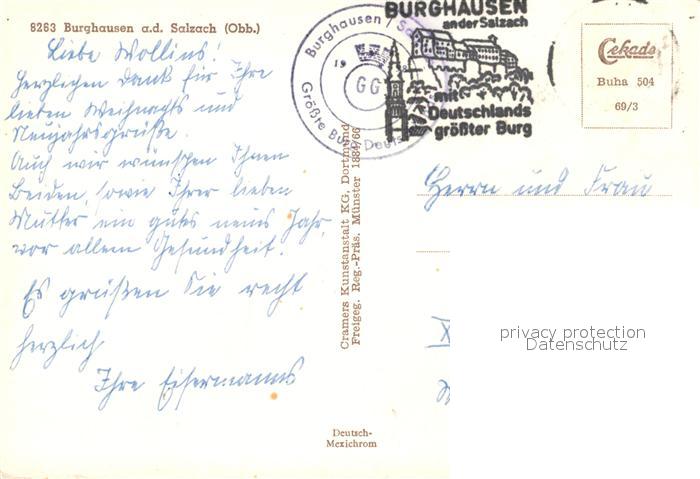 8263 Burghausen a.d. Salzach (Obb.)
Liebe Wollins!
Herzlichen Dank für Ihre
lieben Weihnachts und
Neujahrsgrüße.
Auch wir wünschen Ihnen
beiden, sowie Ihrer lieben
Mutter ein gutes neues Jahr,
vor allem Gesundheit.
Es grüßen Sie recht
herzlich
Ihre Eisermanns
Burghausen /
19
GG
Größte Burg
BURGHAUSEN
an der Salzach
mit
Deutschlands
größter Burg
Cekade
Buha 504
69/3
Cramers Kunstanstalt KG. Dortmund
Freigeg. Reg.-Präs. Münster 1884/66
Herrn und Frau
privacy protection
Datenschutz
Deutsch-
Mexichrom